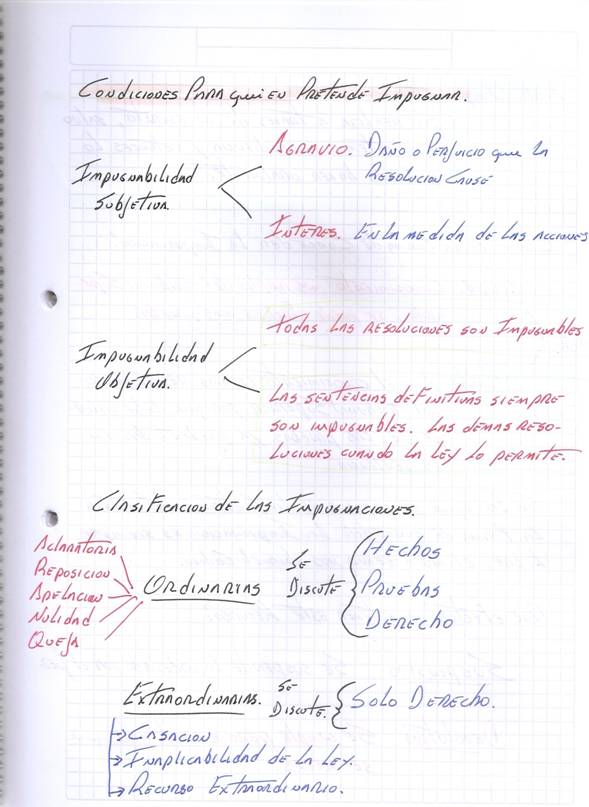 Condiciones Para quien Pretende Impugnar.
Impugnabilidad
Subjetiva.
Agravio. Daño o Perjuicio que la
Resolucion Cause
Interes. En la medida de las acciones
Impugnabilidad
Objetiva.
todas las resoluciones son Impugnables
Las sentencias definitivas siempre
son impugnables. Las demas reso-
luciones cuando la Ley lo permite.
Clasificacion de las Impugnaciones.
Aclaratoria
Reposicion
Apelacion
Nulidad
Queja
Ordinarias
se
Discute
Hechos
Pruebas
Derecho
Extraordinarias.
se
Discute.
Solo Derecho.
Casacion
Inaplicabilidad de la Ley.
Recurso Extraordinario.